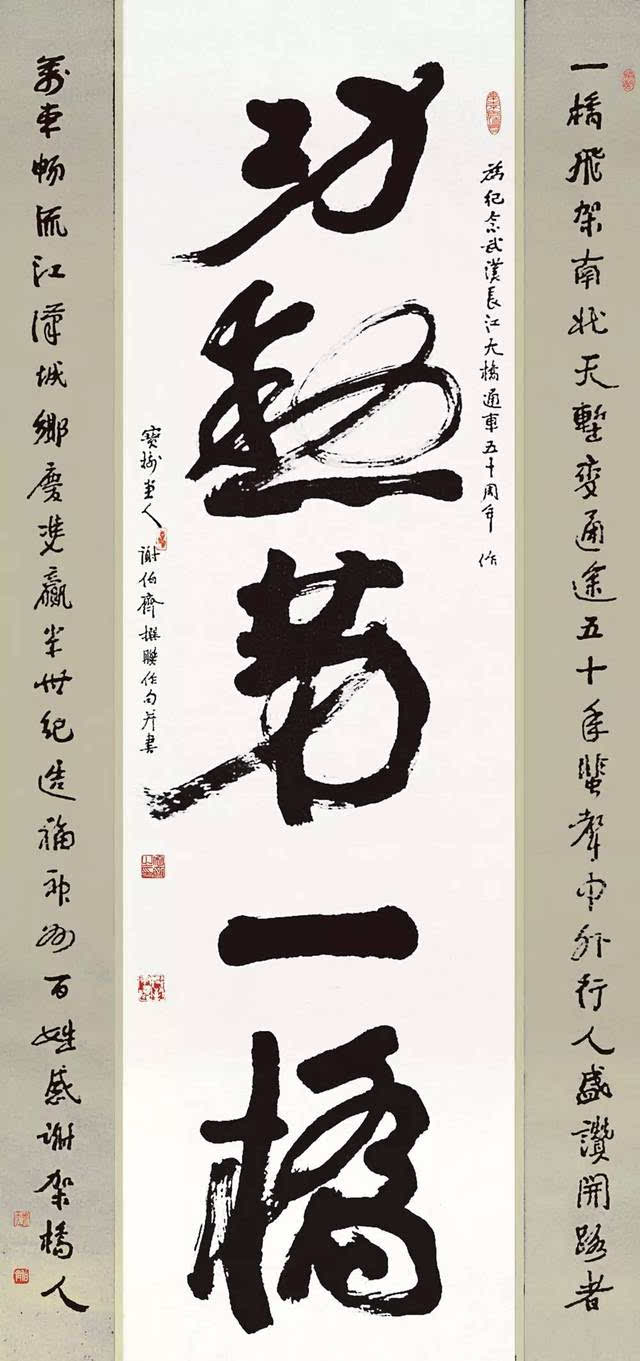 一橋飛架南北天塹變通途五十年蜚聲中外行人盛讚開路者
為纪念武漢長江大橋通車五十周年作
功勳第一橋
寶樹堂人謝伯齊撰聯作句并書
萬車畅流江漢城鄉慶雙贏半世紀造福神州百姓感謝架橋人